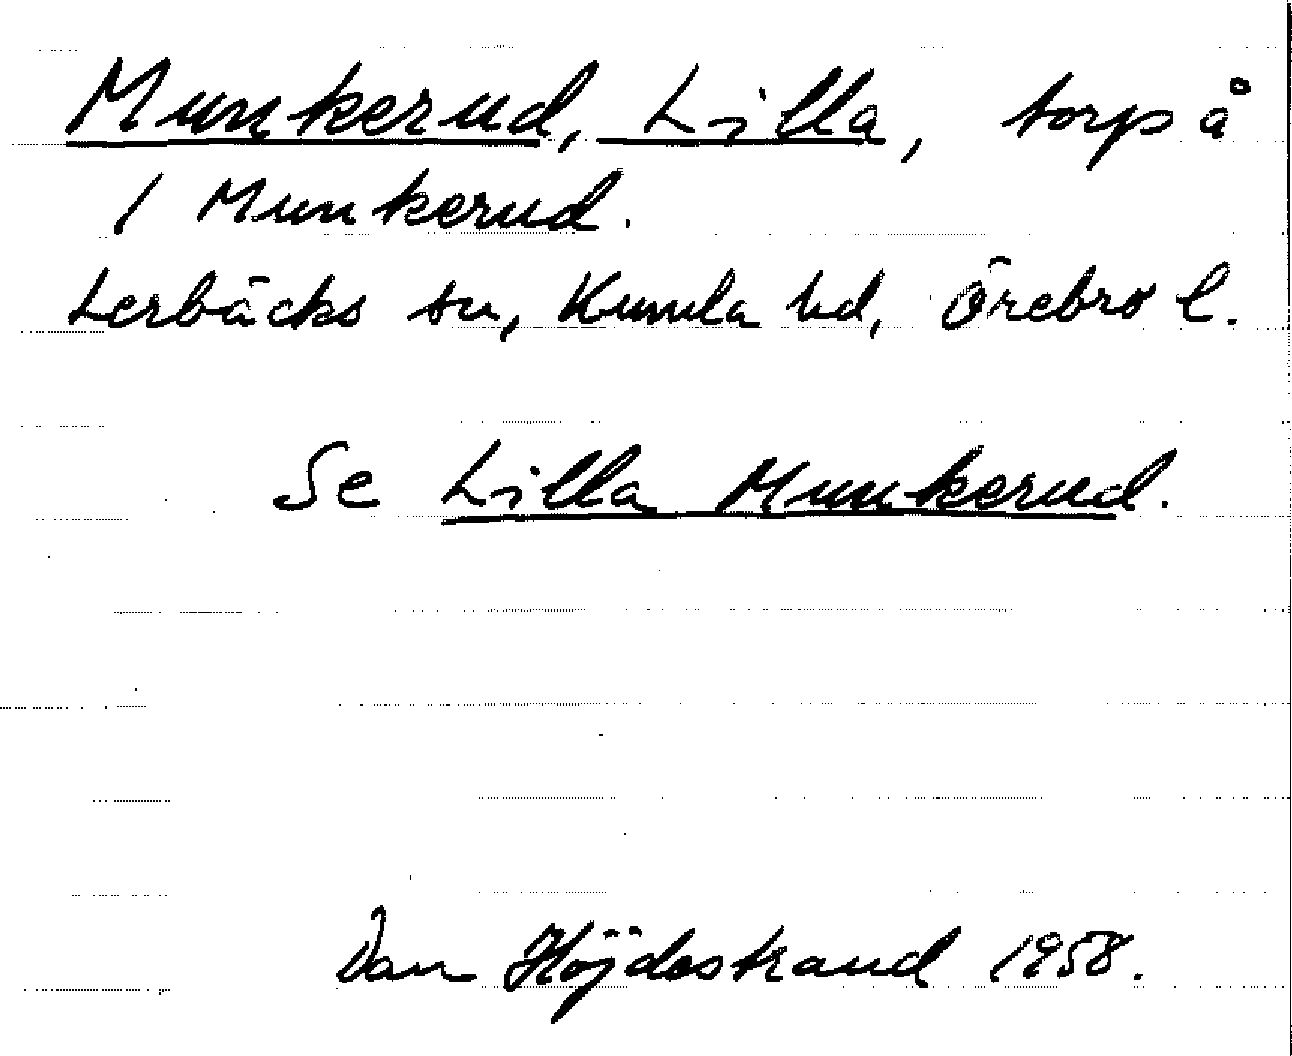 Munkerud, Lilla, torp å
1 Munkerud.
Lerbäcks sn, Kumla hd, Örebro l.
Se Lilla Munkerud.
Dan Höjdestrand 1958.